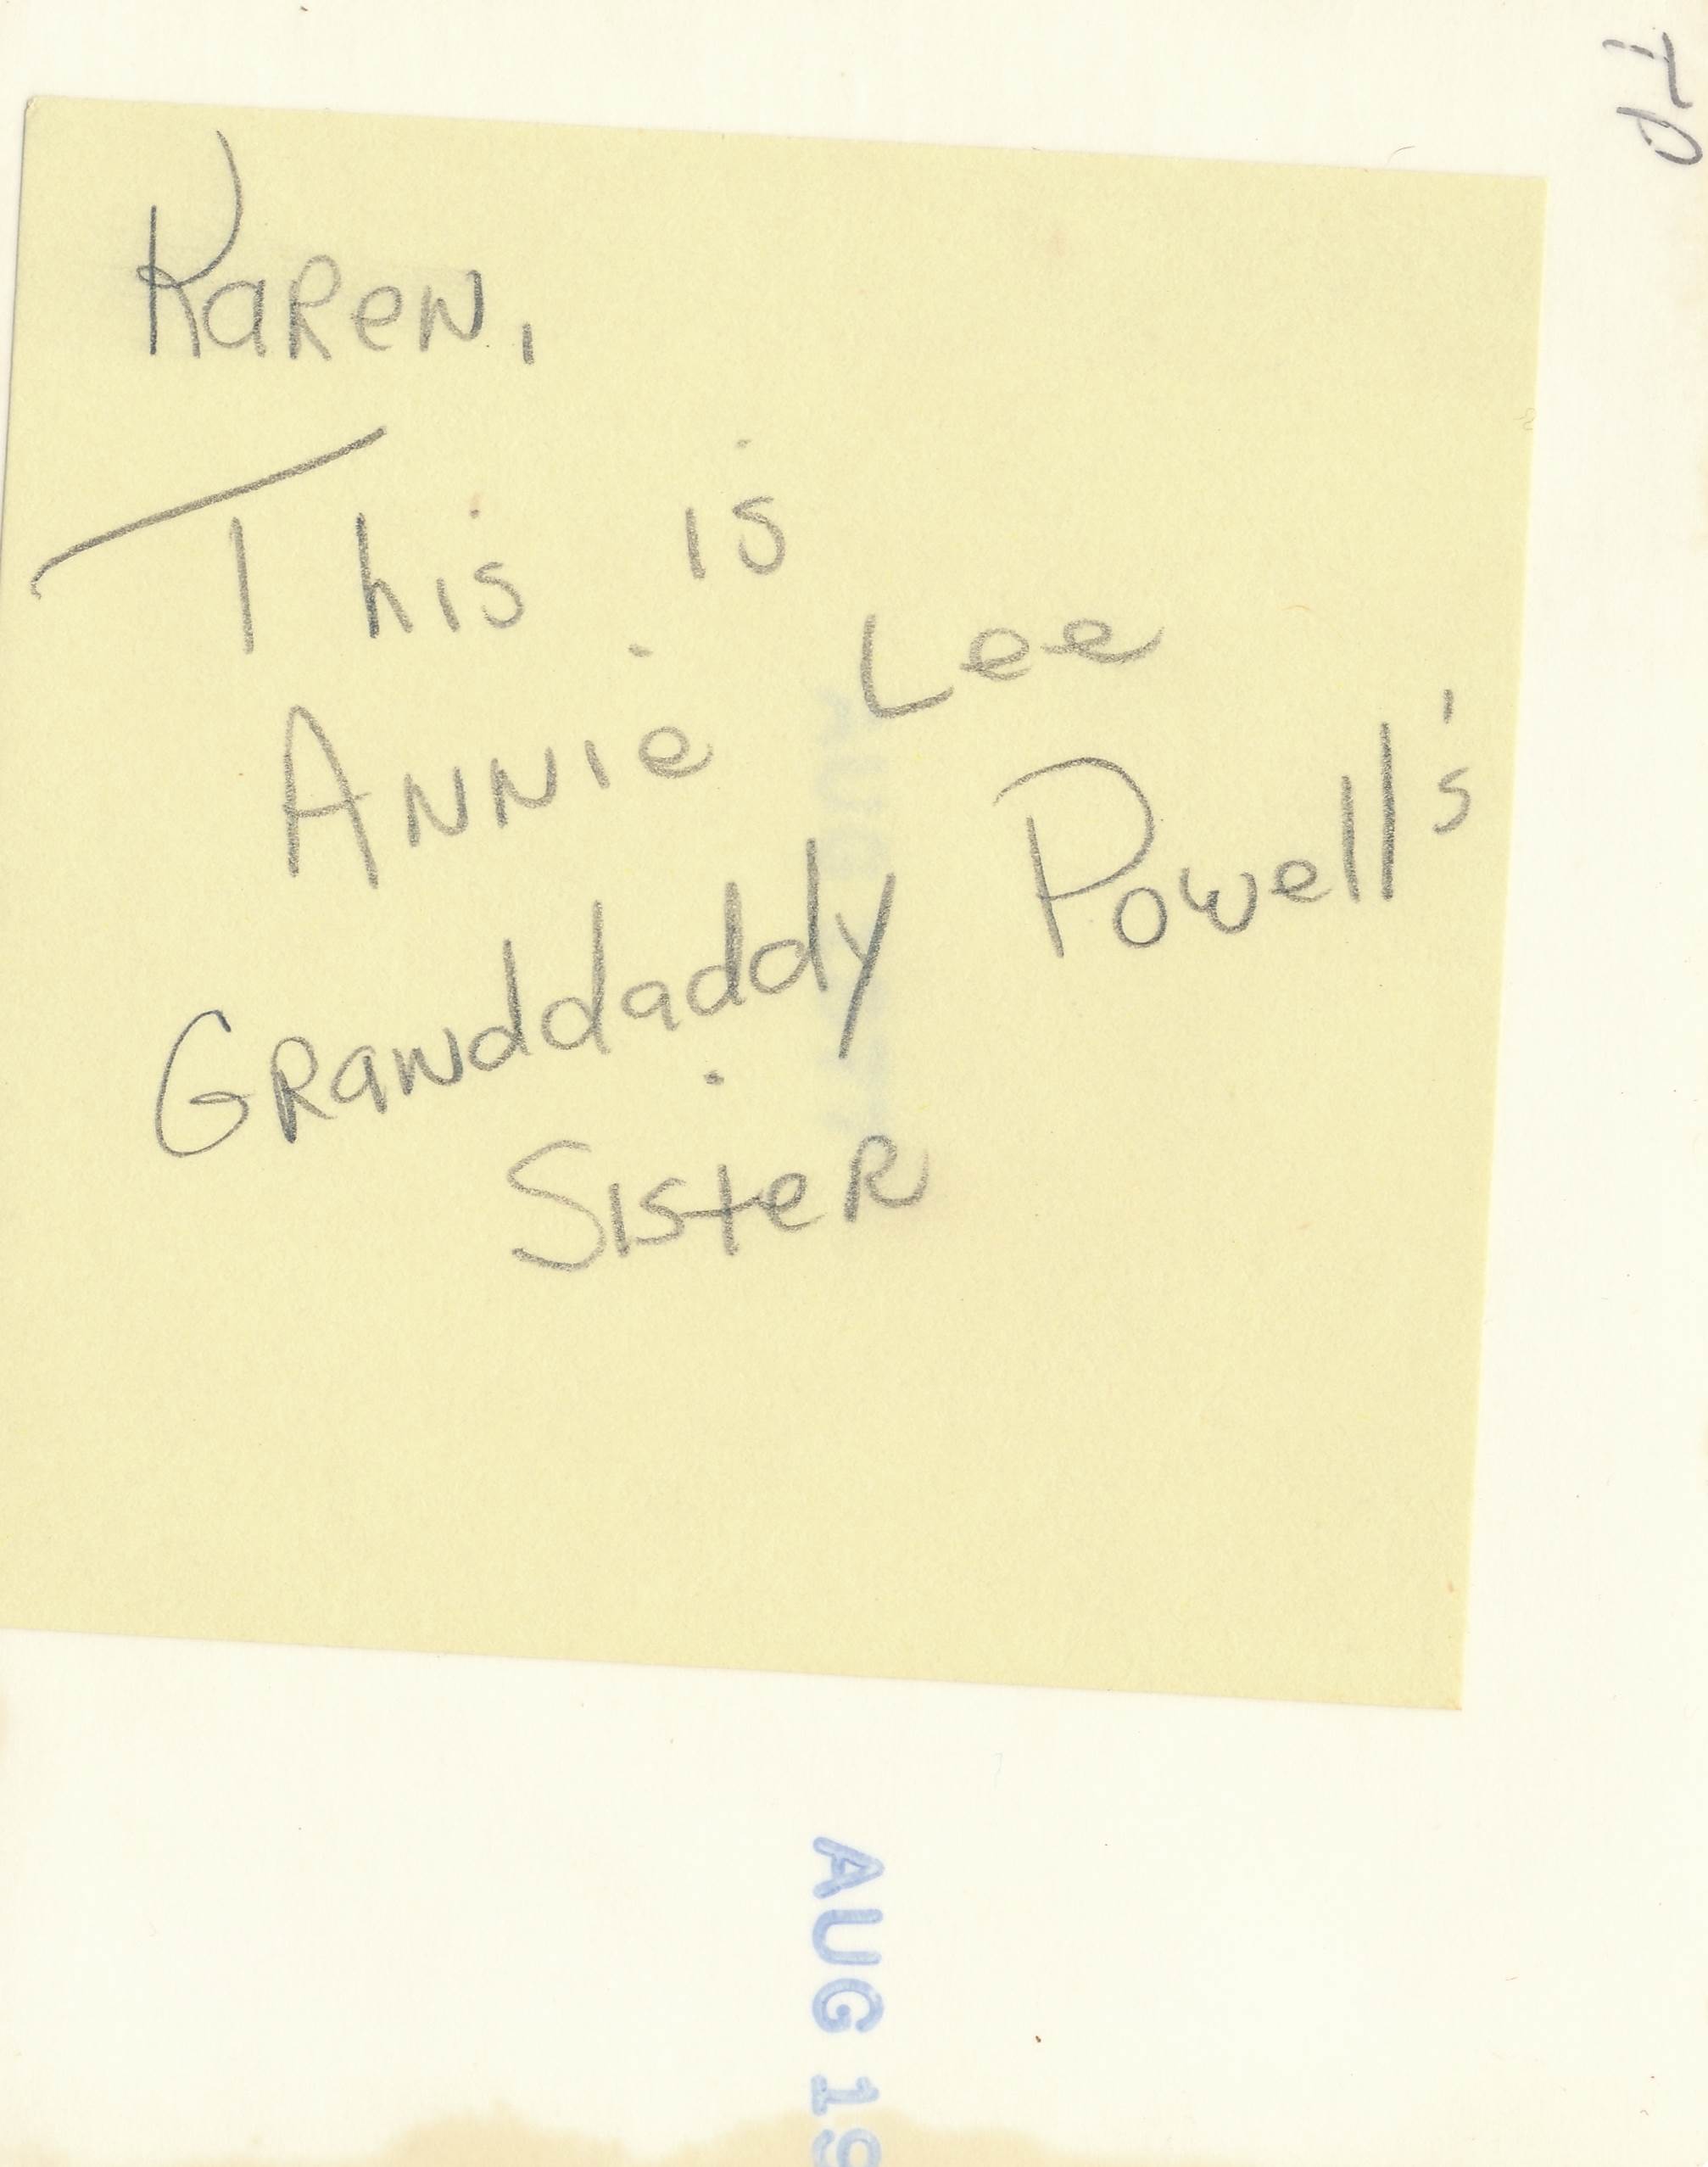 Karen,
This is
Annie Lee
Granddaddy Powell's
Sister
AUG 19